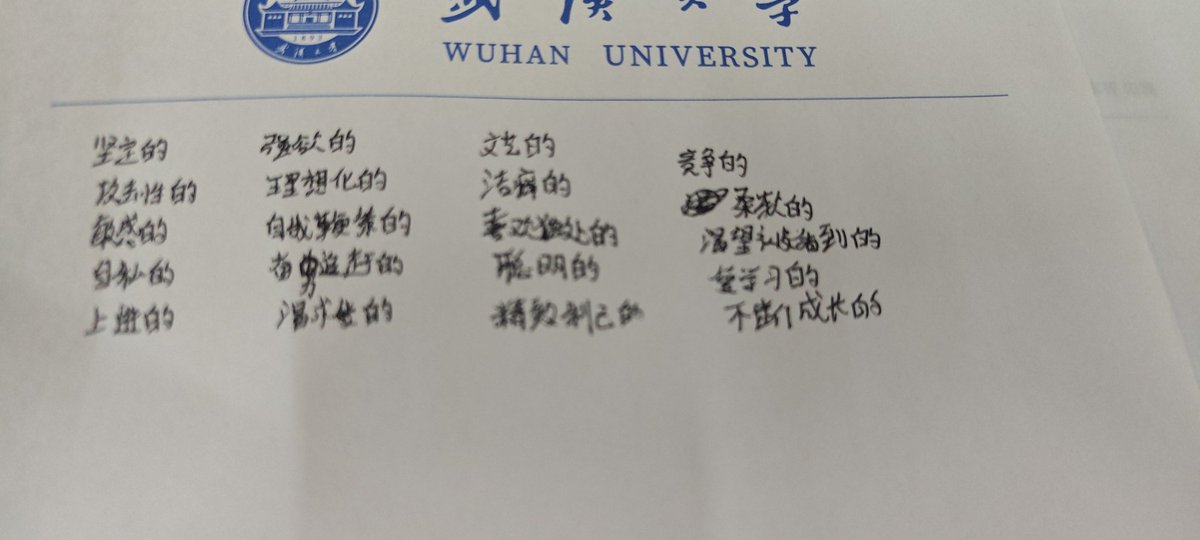 武汉大学
1893
WUHAN UNIVERSITY
坚定的 强欲的 文艺的 竞争的
攻击性的 理想化的 洁癖的 柔软的
敏感的 自我鞭策的 喜欢独处的 渴望认被看到的
自私的 奋勇追赶的 聪明的 爱学习的
上进的 渴求性的 精致利己的 不断成长的